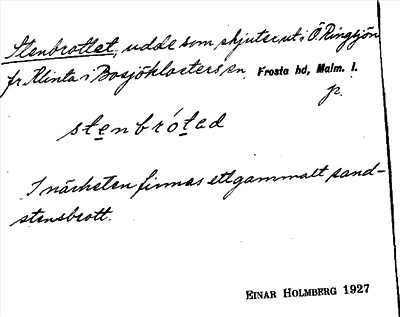 Stenbrottet, udde som skjuter ut i Ö. Ringsjön
fr. Klinta i Bosjöklosters sn. Frosta hd, Malm. l.
p.
stenbrótəd
I närheten finnas ett gammalt sand-
stensbrott.
EINAR HOLMBERG 1927